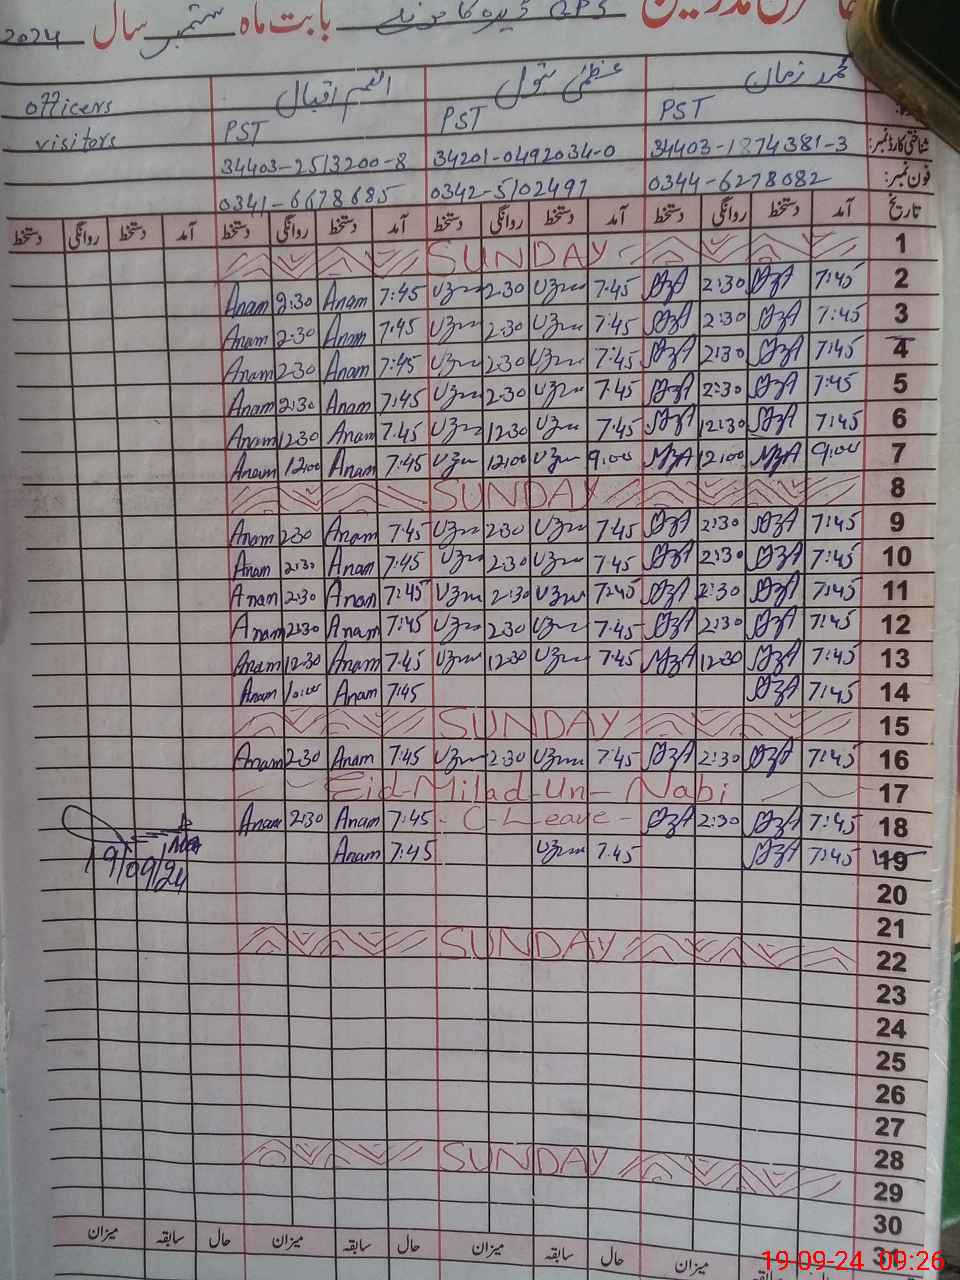 حاضری مدرسین GPS بابت ماہ ستمبر سال 2024
officers انعم اقبال عظمیٰ بتول محمد زمان
visitors PST PST PST
34403-2513200-8 34201-0492034-0 34403-1874381-3 شناختی کارڈ نمبر:
0341-6678685 0342-5102497 0344-6278082 فون نمبر:
تاریخ آمد دستخط روانگی دستخط آمد دستخط روانگی دستخط آمد دستخط روانگی دستخط آمد دستخط روانگی دستخط
SUNDAY 1
Anam 2:30 Anam 7:45 Uzma 2:30 Uzma 7:45 2:30 7:45 2
Anam 2:30 Anam 7:45 Uzma 2:30 Uzma 7:45 2:30 7:45 3
Anam 2:30 Anam 7:45 Uzma 2:30 Uzma 7:45 2:30 7:45 4
Anam 2:30 Anam 7:45 Uzma 2:30 Uzma 7:45 2:30 7:45 5
Anam 12:30 Anam 7:45 Uzma 12:30 Uzma 7:45 12:30 7:45 6
Anam 12:00 Anam 7:45 Uzma 12:00 Uzma 9:00 MzA 12:00 MzA 9:00 7
SUNDAY 8
Anam 2:30 Anam 7:45 Uzma 2:30 Uzma 7:45 2:30 7:45 9
Anam 2:30 Anam 7:45 Uzma 2:30 Uzma 7:45 2:30 7:45 10
Anam 2:30 Anam 7:45 Uzma 2:30 Uzma 7:45 2:30 7:45 11
Anam 2:30 Anam 7:45 Uzma 2:30 Uzma 7:45 2:30 7:45 12
Anam 12:30 Anam 7:45 Uzma 12:30 Uzma 7:45 12:30 7:45 13
Anam 10:00 Anam 7:45 7:45 14
SUNDAY 15
Anam 2:30 Anam 7:45 Uzma 2:30 Uzma 7:45 2:30 7:45 16
Eid-Milad-Un-Nabi 17
Anam 2:30 Anam 7:45 - C-Leave - 2:30 7:45 18
19/09/24 Anam 7:45 Uzma 7:45 7:45 19
20
21
SUNDAY 22
23
24
25
26
27
SUNDAY 28
29
30
31
میزان حال سابقہ میزان حال سابقہ میزان حال سابقہ میزان
19-09-24 09:26